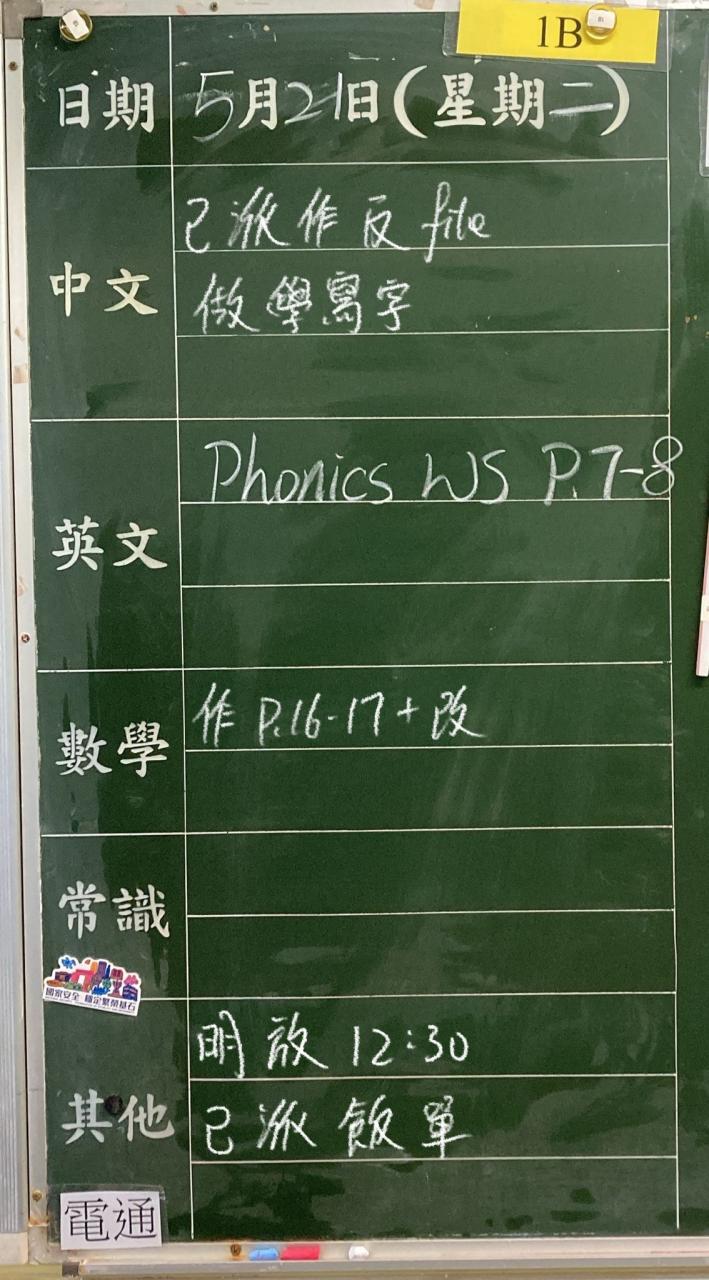 1B
日期 5月21日(星期二)
中文
已派作反file
做學寫字
英文
Phonics WS P.7-8
數學
作 P.16-17+改
常識
國家安全 穩定繁榮基石
其他
明放 12:30
已派飯單
電通